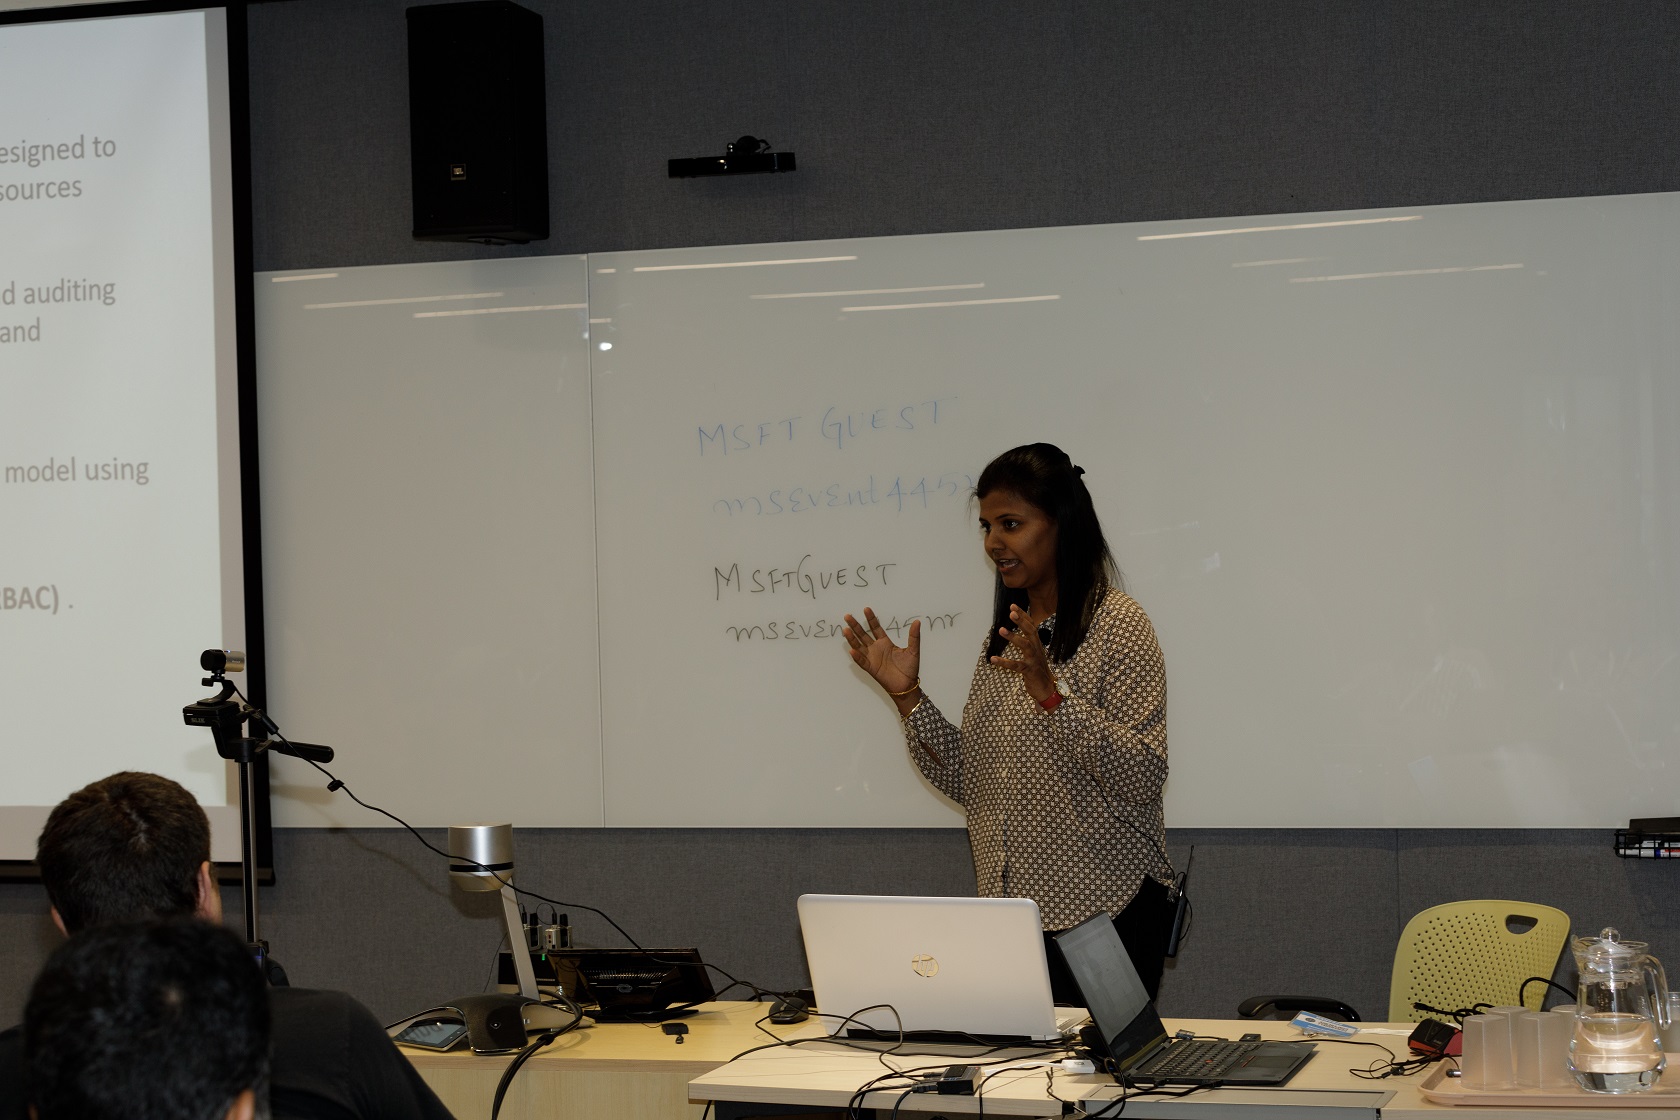 esigned to
sources
d auditing
and
model using
BAC) .
MSFT GUEST
msEvEnt445
MSFTGUEST
hp